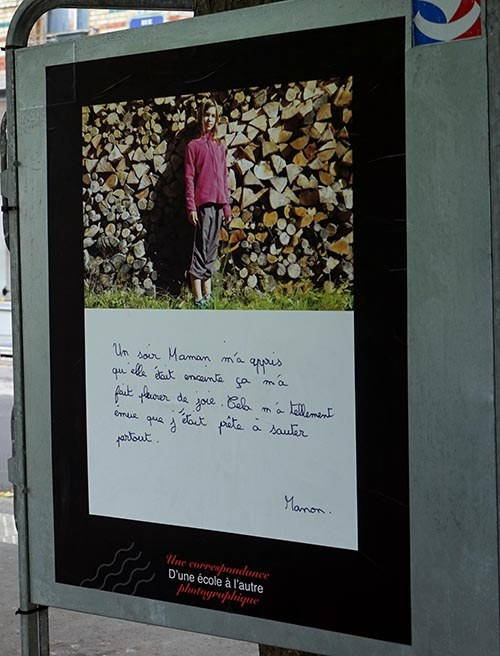 Un soir Maman m'a appris
qu'elle était enceinte ça m'a
fait pleurer de joie. Cela m'a tellement
émue que j'était prête à sauter
partout.
Manon.
Une correspondance
D'une école à l'autre
photographique